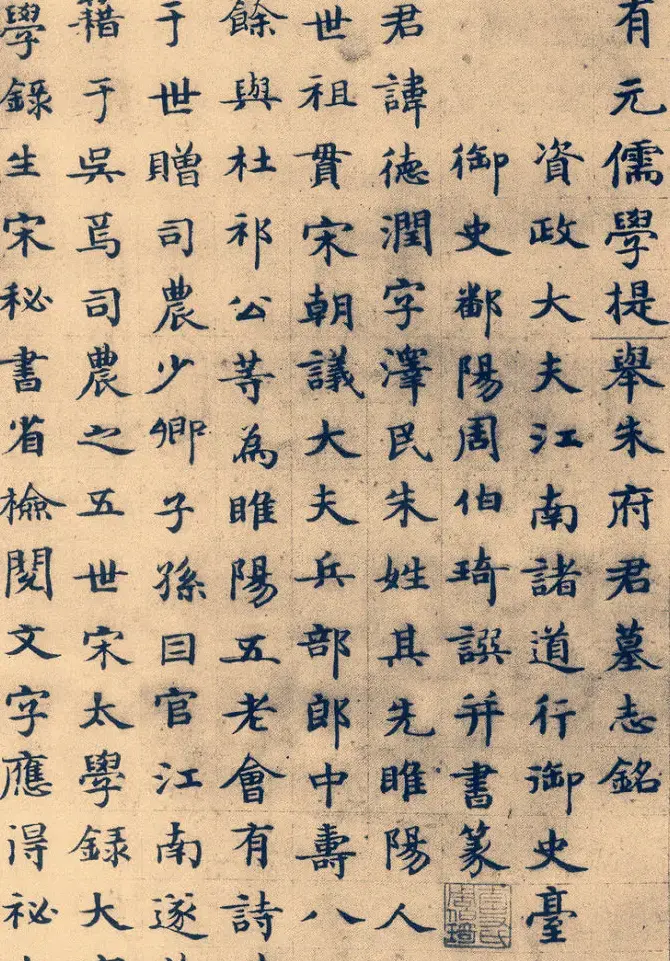 有元儒學提舉朱府君墓志銘
資政大夫江南諸道行御史臺
御史鄱陽周伯琦譔并書篆
君諱德潤字澤民朱姓其先睢陽人
世祖貫宋朝議大夫兵部郎中壽八
餘與杜祁公等為睢陽五老會有詩
于世贈司農少卿子孫曰官江南遂
籍于吳焉司農之五世宋太學録大
學錄生宋秘書省檢閱文字應得祕